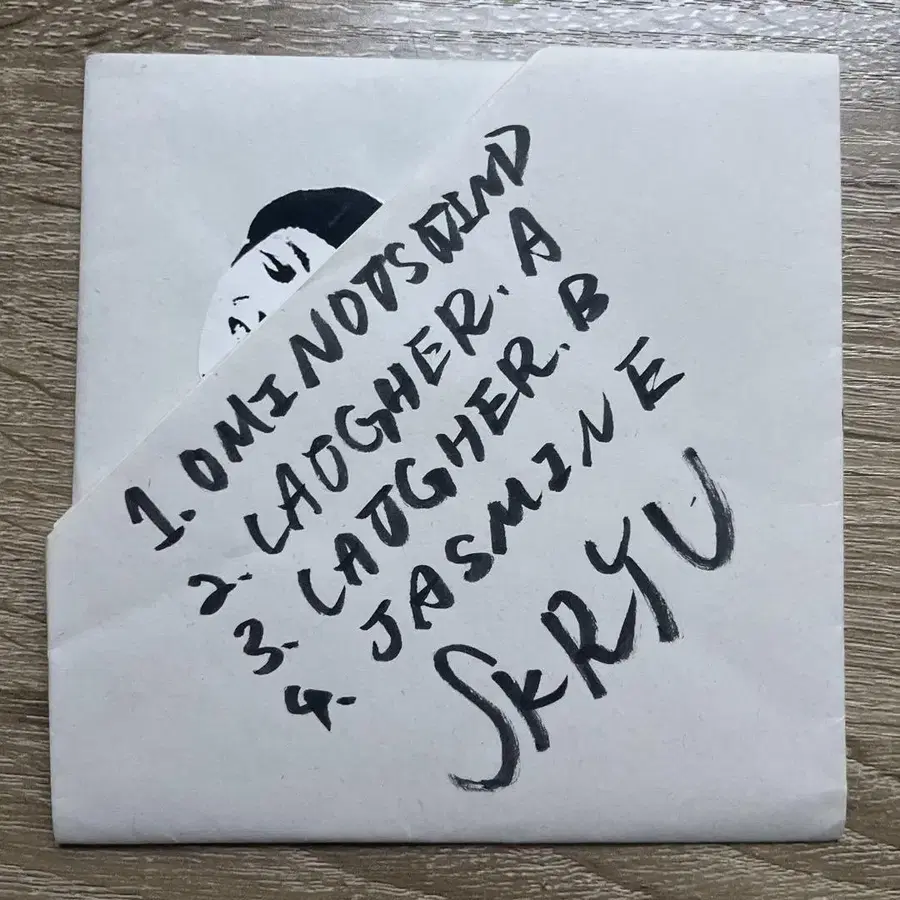 1. OMINOUS WIND
2. LAUGHER. A
3. LAUGHER. B
4. JASMINE
SKRYU